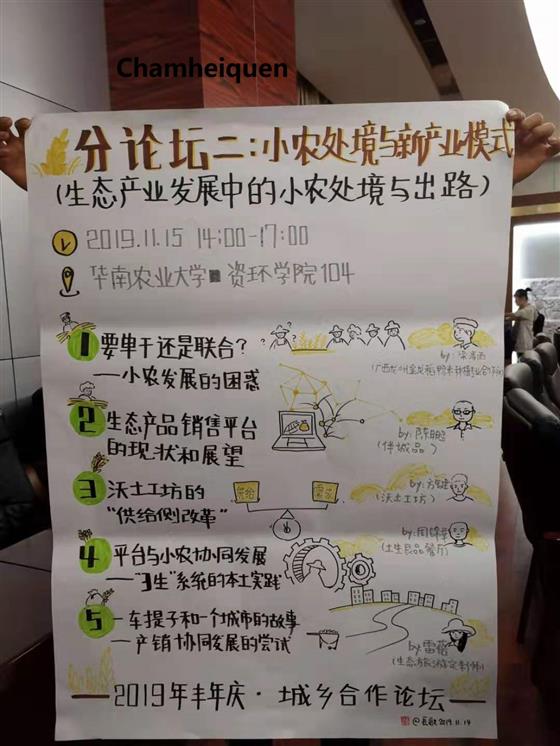 Chamheiquen
分论坛二：小农处境与新产业模式
（生态产业发展中的小农处境与出路）
2019.11.15 14:00-17:00
华南农业大学 资环学院104
1 要单干还是联合？
——小农发展的困惑
by:
2 生态产品销售平台
的现状和展望
by:陈鹏
（伴城品）
3 沃土工坊的
“供给侧改革”
供给
需求
by:
（沃土工坊）
4 平台与小农协同发展
——“3生”系统的本土实践
by:周锦章
（土生良品餐厅）
5 一车提子和一个城市的故事
——产销协同发展的尝试
by:雷
——2019年丰年庆·城乡合作论坛——
2019.11.14